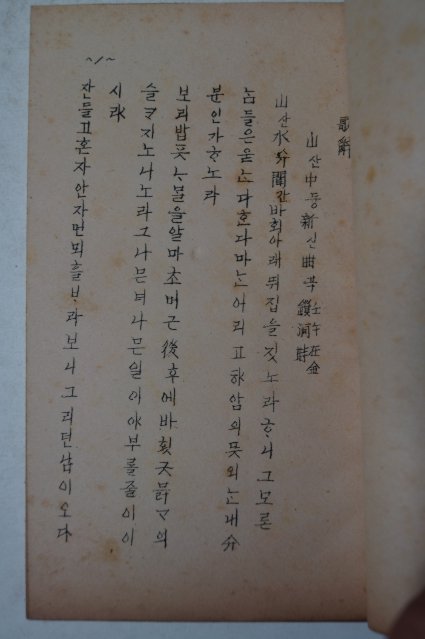 歌辭
山산中듕新신曲곡 壬午在金鎖洞時
山산水슈間간바회아래뛰집을짓노라ᄒᆞ니그모론
ᄂᆞᆷ들은욷ᄂᆞᆫ다ᄒᆞᆫ다마ᄂᆞᆫ어리고햐암의ᄯᅳᆺ의ᄂᆞᆫ내分
분인가ᄒᆞ노라
보리밥픗ᄂᆞ물을알마초머근後후에바횟긋믉ᄀᆞ의
슬ᄏᆞ지노니노라그나믄녀나믄일이야부ᄅᆞᆯ줄이이
시랴
잔들고혼자안자먼뫼흘ᄇᆞ라보니그리던님이오다
~1~